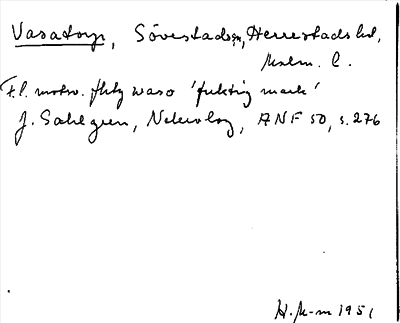 Vasatorp, Sövestads sn, Herrestads hd,
Malm. l.
F.l. motsv. fhty waso 'fuktig mark'
J. Sahlgren, Nekrolog, ANF 50, s. 276
H. M-m 1951